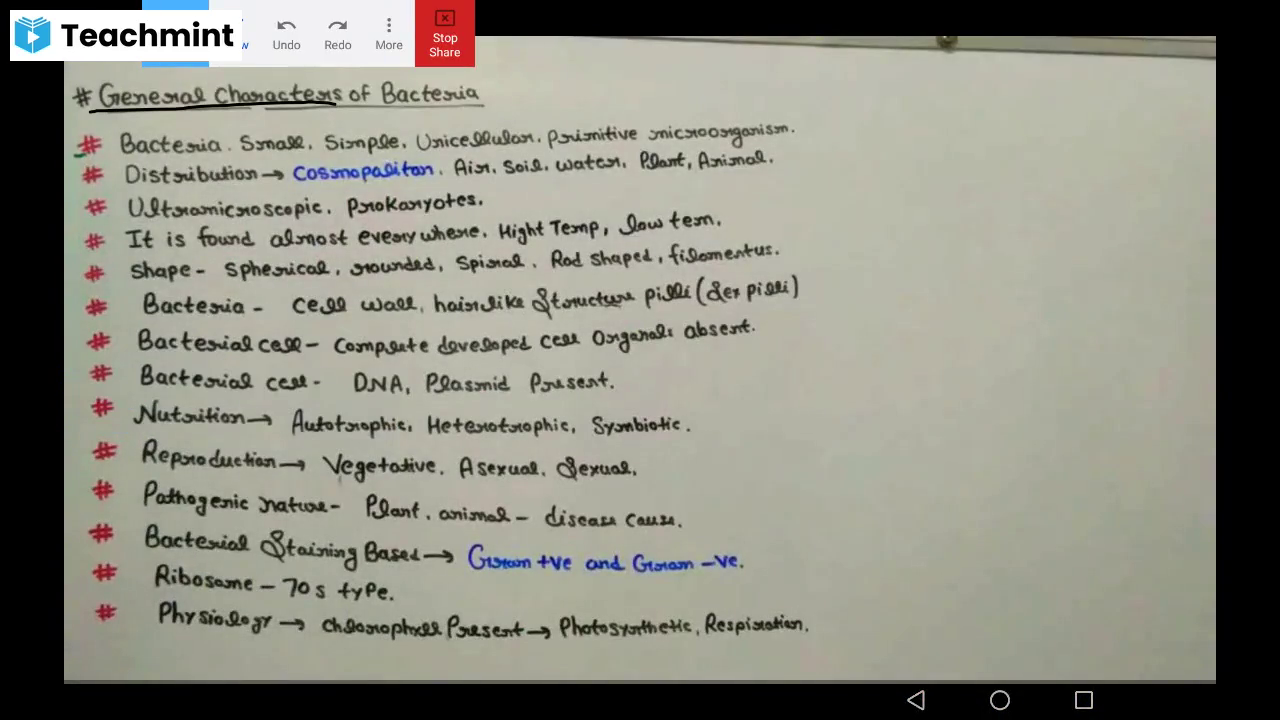 Teachmint
Undo
Redo
More
Stop
Share
# General Characters of Bacteria
# Bacteria. Small, Simple, Unicellular. primitive microorganism.
# Distribution → Cosmopalitan. Air. Soil. water. Plant, Animal.
# Ultramicroscopic. Prokaryotes.
# It is found almost every where. Hight Temp, low tem.
# Shape - Spherical, rounded, Spiral. Rod shaped, filamentus.
# Bacteria - Cell wall, hair like Structure pilli (Sex pilli)
# Bacterial cell - Complete developed cell Organals absent.
# Bacterial cell - DNA, Plasmid Present.
# Nutrition → Autotrophic, Heterotrophic, Symbiotic.
# Reproduction → Vegetative. Asexual. Sexual.
# Pathogenic nature - Plant. animal - disease cause.
# Bacterial Staining Based → Gram +ve and Gram -ve.
# Ribosome - 70s type.
# Physiology → Chlorophyll Present → Photosynthetic, Respiration.